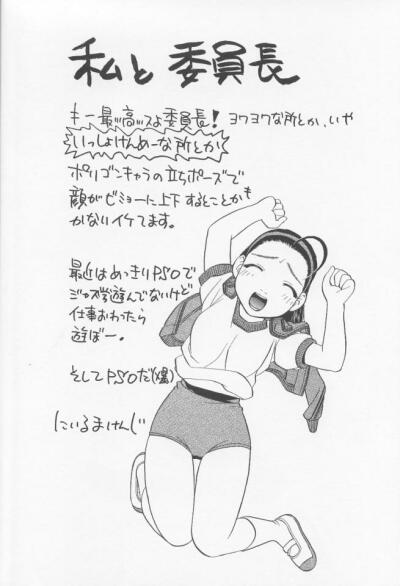 私と委員長
キー最ッ高ッスよ委員長！ヨワヨワな所とか、いや
いっしょけんめーな所とか
ポリゴンキャラの立ちポーズで
顔がビミョーに上下するとことかも
かないイケてます。
最近はめっきりPSOで
ジャズ学遊んでないけど
仕事おわったら
遊ぼー。
そしてPSOだ(爆)
にいるまけんじ